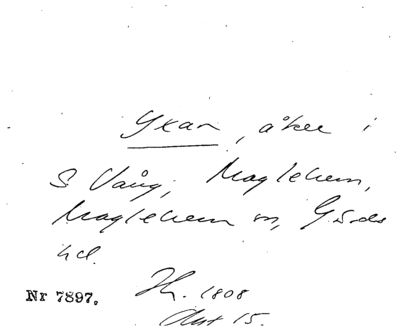 Yxan, åker i
S Vång, Maglehem,
Maglehem sn, Gärds
hd.
Nr 7897. 1808
Akt 15.